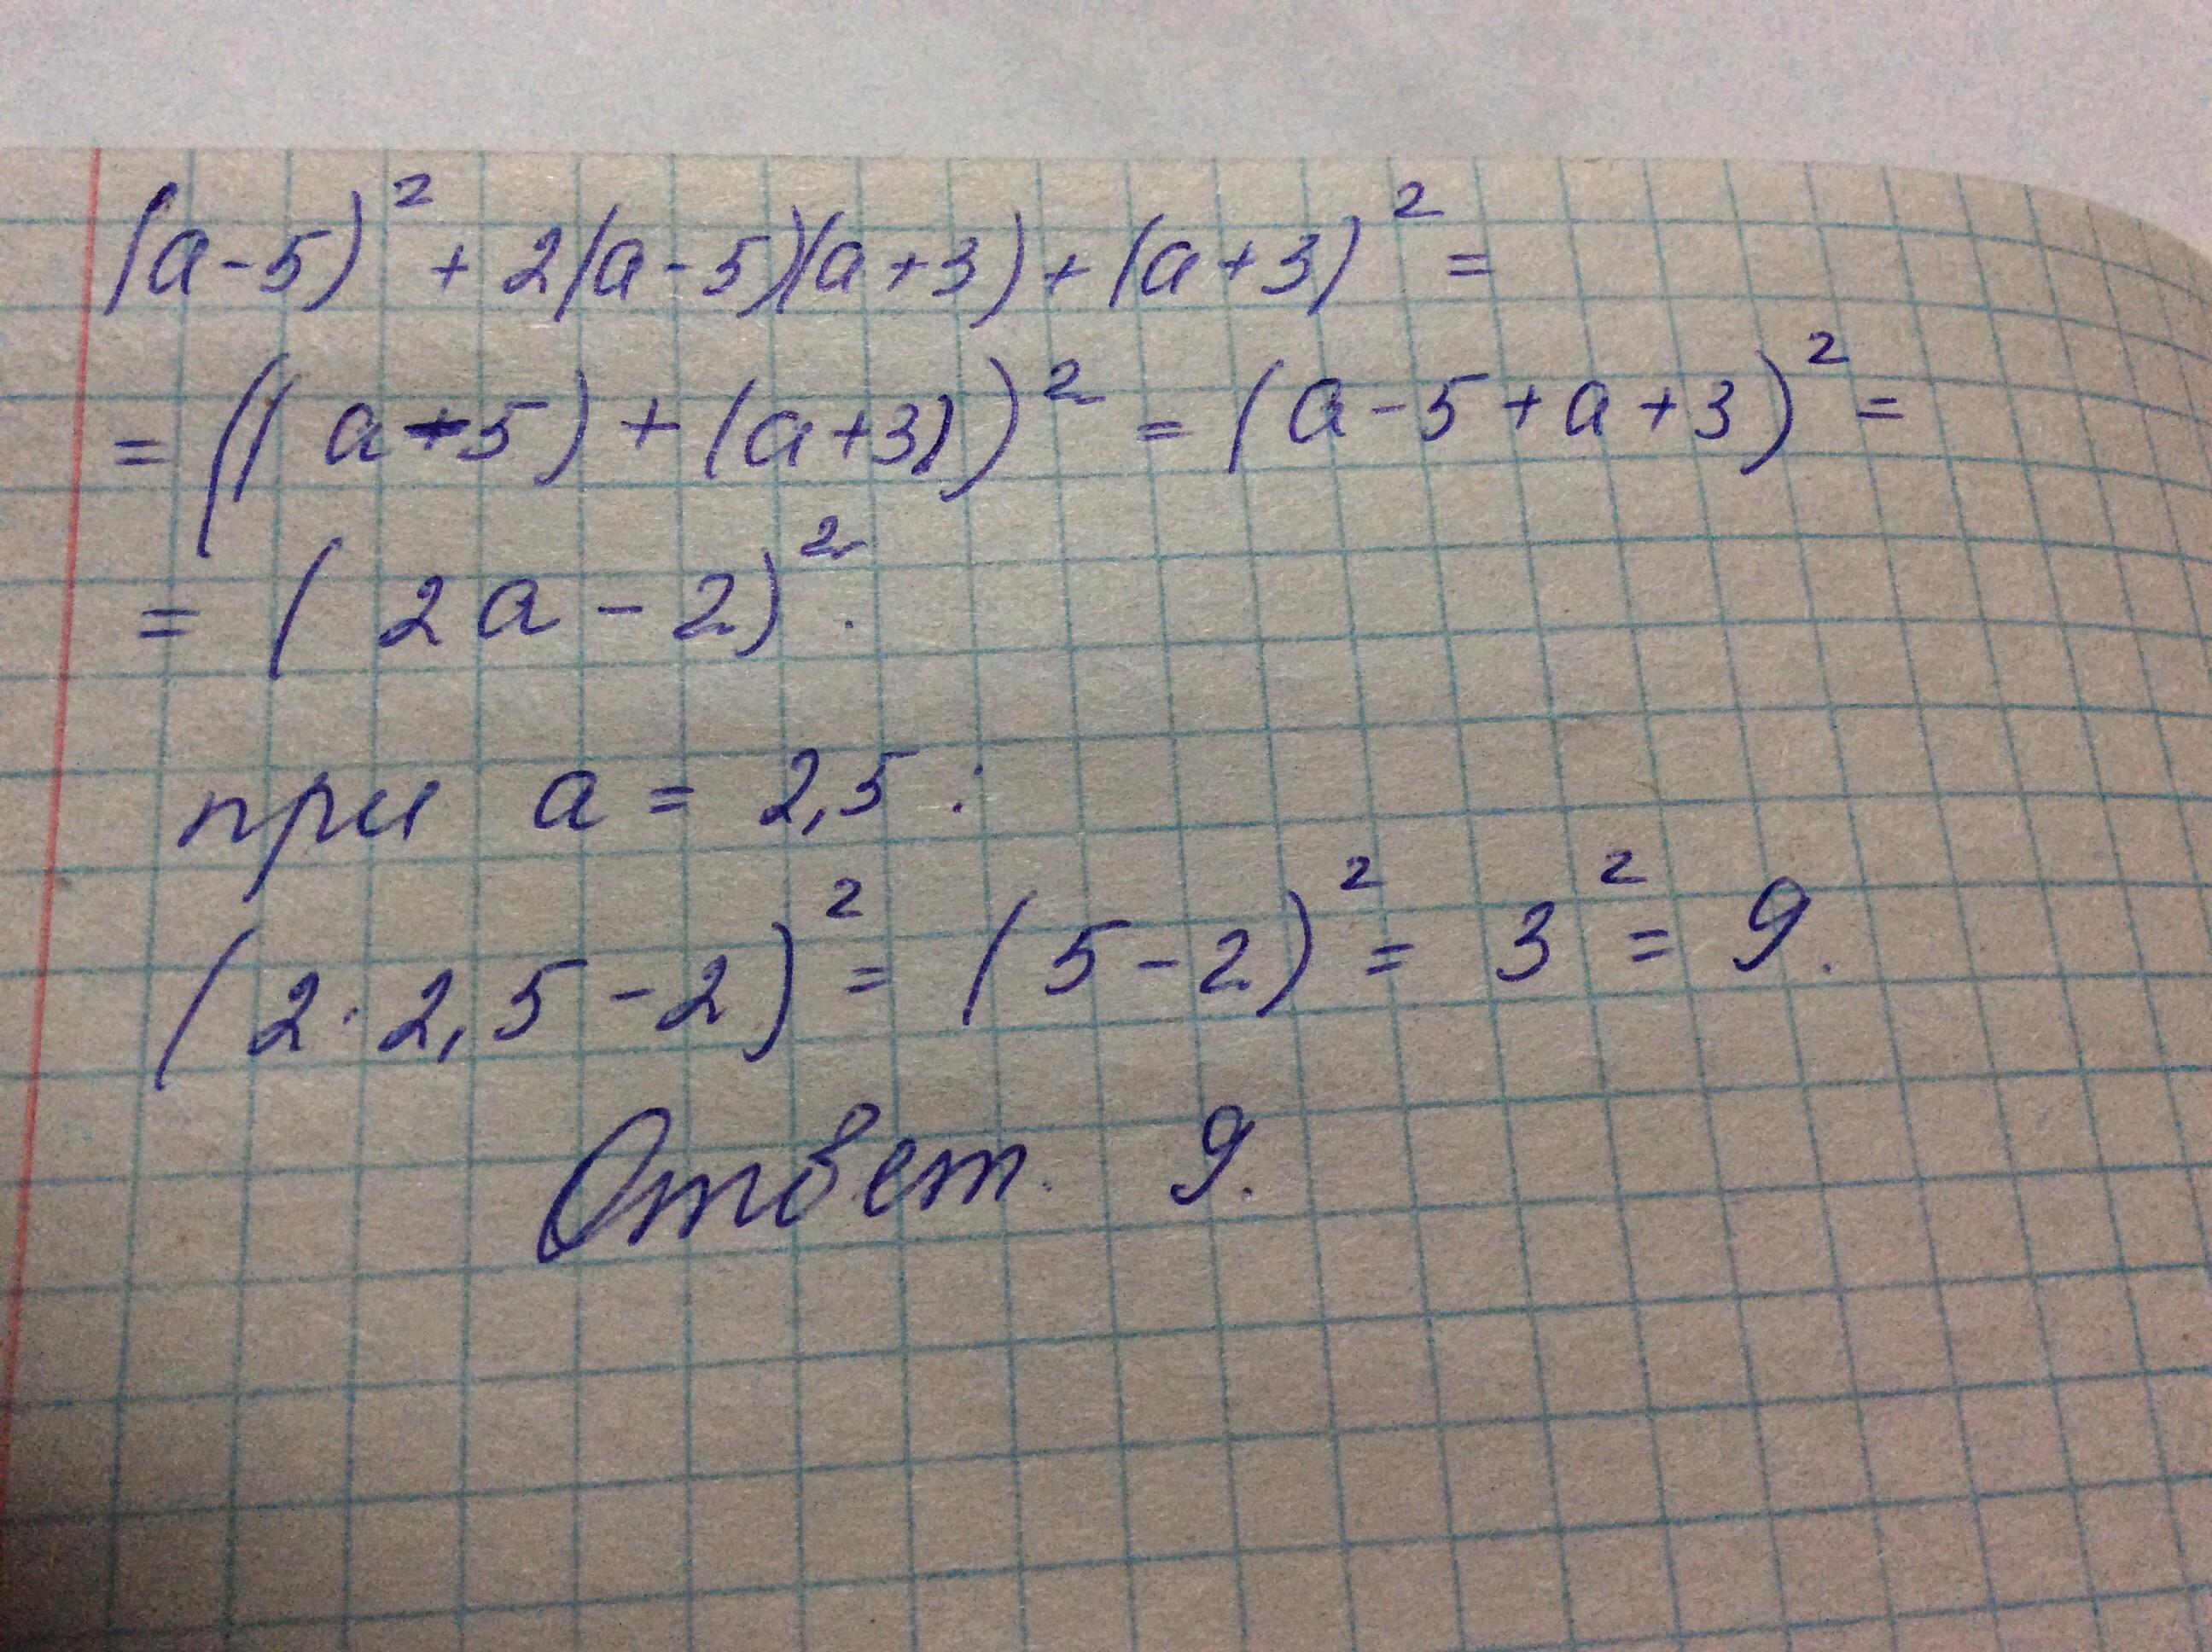 (a-5)² + 2(a-5)(a+3) + (a+3)² =
= ((a-5) + (a+3))² = (a-5+a+3)² =
= (2a-2)².
при a = 2,5:
(2·2,5-2)² = (5-2)² = 3² = 9.
Ответ. 9.